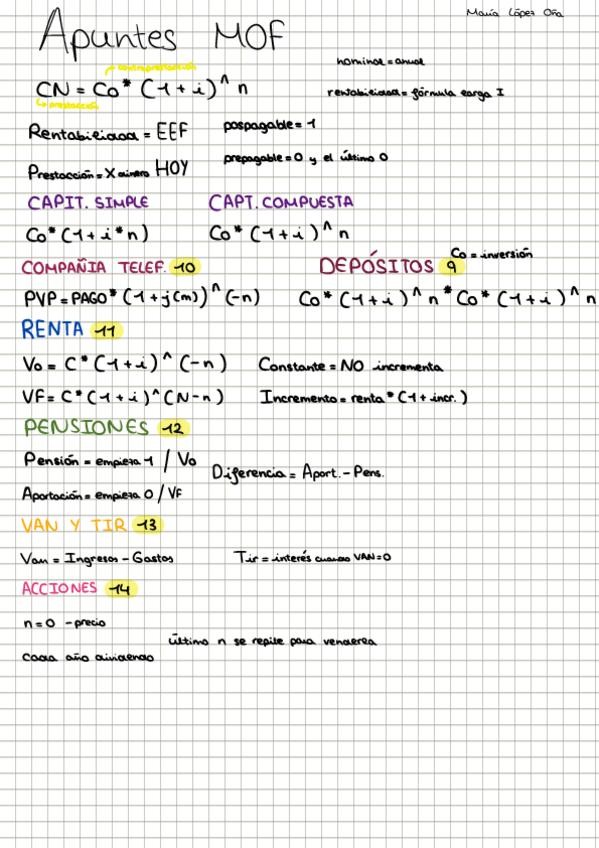 María López Oña
Apuntes MOF
nominal = anual
contraprestación
CN = Co* (1+i)^n
prestación
rentabilidad = fórmula larga I
Rentabilidad = EEF
pospagable = 1
prepagable = 0 y el último 0
Prestacción = X dinero HOY
CAPIT. SIMPLE
CAPT. COMPUESTA
Co* (1+i*n)
Co* (1+i)^n
Co = inversión
COMPAÑIA TELEF. 10
DEPÓSITOS 9
PVP = PAGO* (1+j(m))^(-n)
Co* (1+i)^n * Co* (1+i)^n
RENTA 11
Vo = C* (1+i)^(-n)
Constante = NO incrementa
VF = C* (1+i)^(N-n)
Incremento = renta* (1+incr.)
PENSIONES 12
Pensión = empieza 1 / Vo
Diferencia = Aport. - Pens.
Aportación = empieza 0 / VF
VAN Y TIR 13
Van = Ingresos - Gastos
Tir = interés cuando VAN=0
ACCIONES 14
n=0 -precio
último n se repite para venderla
Cada año dividendo